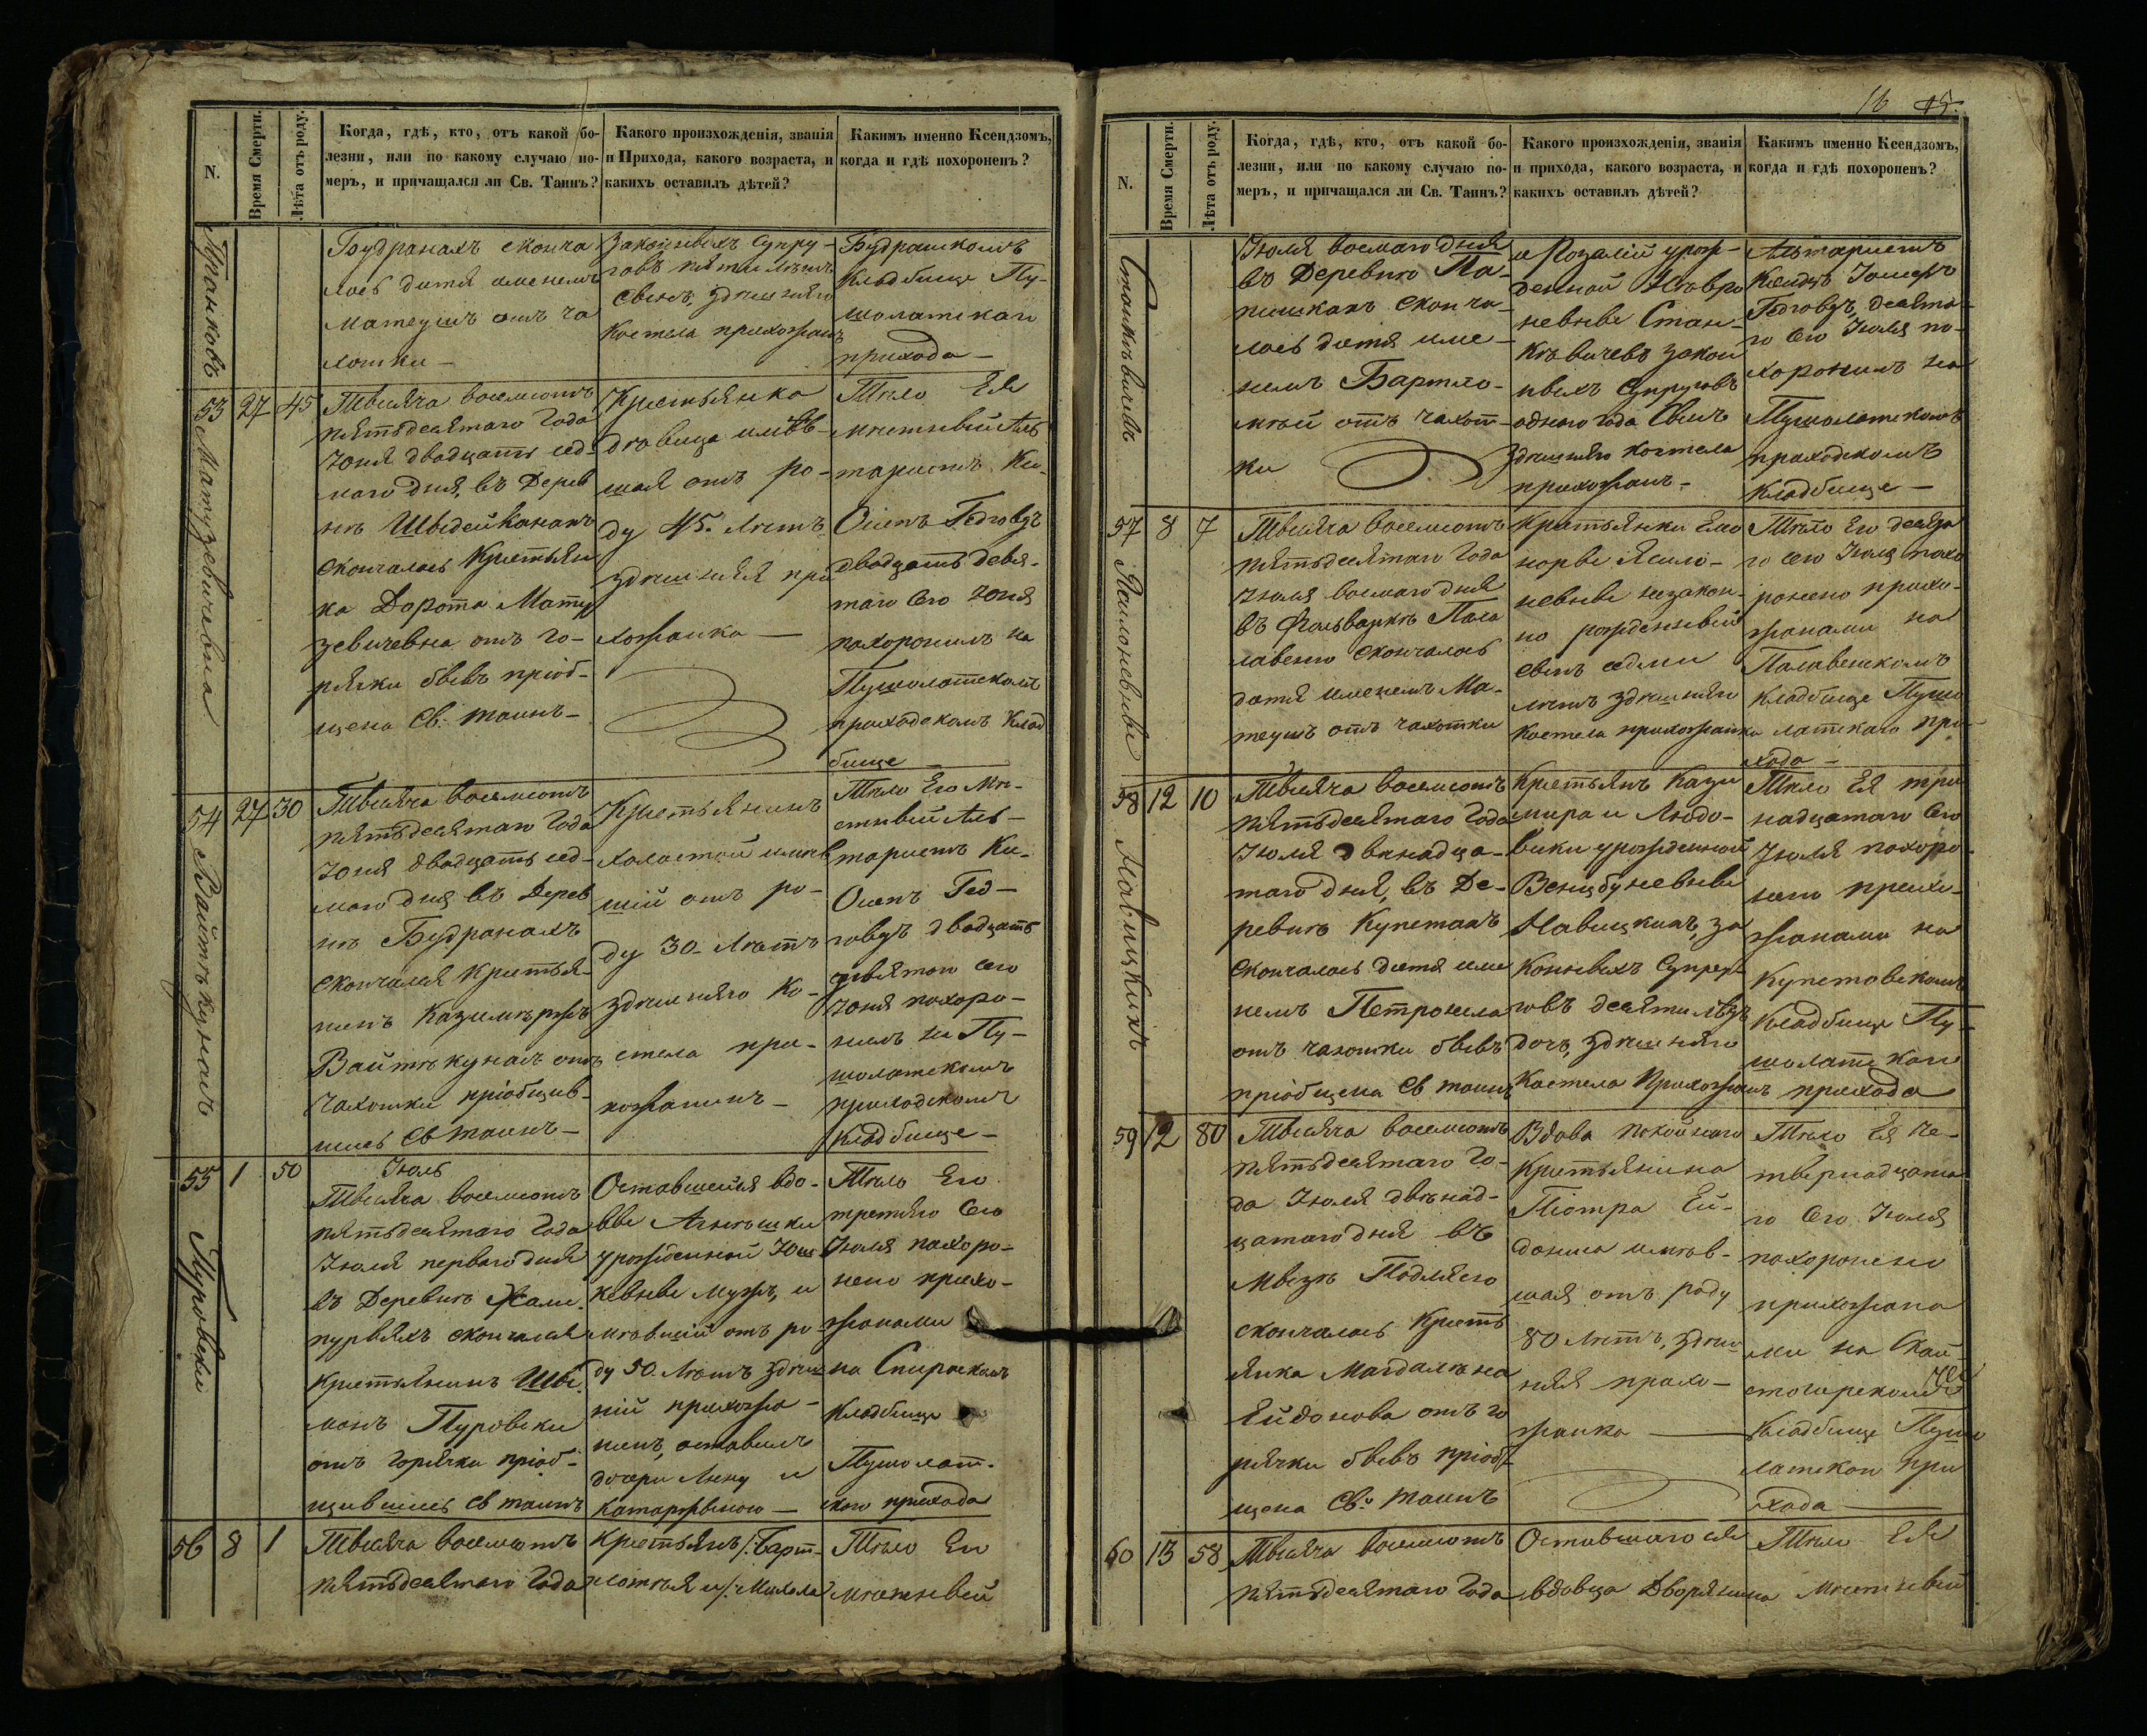 N.
Время Смерти.
Лѣта отъ роду.
Когда, гдѣ, кто, отъ какой бо-
лезни, или по какому случаю по-
меръ, и причащался ли Св. Таинъ?
Какого произхожденія, званія
и Прихода, какого возраста, и
какихъ оставилъ дѣтей?
Какимъ именно Ксендзомъ,
когда и гдѣ похороненъ?
Будранахъ сконча
лось дитя именемъ
Матеушъ отъ ча
хотки —
Законныхъ Супру-
говъ пяти лѣтъ
Сынъ, здѣшняго
Костела прихожанъ
Будрашкомъ
Кладбище Пу-
шолатскаго
прихода —
53 27 45
Матузевичевна
Тысяча восемсотъ
пятьдесятаго Года
Юня двадцать сед-
маго дня, въ Дерев
нѣ Швідейканахъ
скончалась Крестьян
ка Дорота Мату
зевичевна отъ го-
рячки бывъ пріоб-
щена Св. таинъ —
Крестьянка
дѣвица имѣв-
шая отъ ро-
ду 45. Лѣтъ
здѣшняя при
хожанка —
Тѣло Ея
мѣстный Аль
таристъ Кс.
Осипъ Гедговдъ
двадцать девя-
таго Сего Юня
похоронилъ на
Пушолатскомъ
приходскомъ Клад
бище
54 27 30
Вайткунасъ
Тысяча восемсотъ
пятьдесятаго Года
Юня двадцать сед-
маго дня въ Дерев
нѣ Будранахъ
скончался Крестья-
нинъ Казимѣржъ
Вайткунасъ отъ
чахотки пріобщив-
шись Св таинъ —
Крестьянинъ
холостой имѣв
шій отъ ро-
ду 30. Лѣтъ
здѣшняго Ко-
стела при-
хожанинъ —
Тѣло Его Мѣ-
стный Аль-
таристъ Кс.
Осипъ Гед-
говдъ двадцать
девятаго сего
Юня похоро-
нилъ на Пу-
шолатскомъ
приходскомъ
Кладбище —
55 1 50
Туровски
Юль
Тысяча восемсотъ
пятьдесятаго Года
Июля перваго дня
въ Деревнѣ
скончался
Крестьянинъ Шы
монъ Туровски
отъ горячки пріоб-
щившись Св таинъ
Оставшейся вдо-
вы Агнѣшки
урожденной Юш
кевны Мужъ, и
мѣвшій отъ ро-
ду 50. Лѣтъ здѣш
ній прихожа-
нинъ, оставилъ
дочери Анну и
Катаржыною —
Тѣло Его
третьяго Сего
Июля похоро-
нено прихо-
жанами
на Спиракскомъ
Кладбище
Пушолат-
скаго прихода
56 8 1
Тысяча восемсотъ
пятьдесятаго Года
Крестьянъ Барт-
ломѣя и Михала
Тѣло Его
мѣстный
16 15.
N.
Время Смерти.
Лѣта отъ роду.
Когда, гдѣ, кто, отъ какой бо-
лезни, или по какому случаю по-
меръ, и причащался ли Св. Таинъ?
Какого произхожденія, званія
и прихода, какого возраста, и
какихъ оставилъ дѣтей?
Какимъ именно Ксендзомъ,
когда и гдѣ похороненъ?
Станкѣвичевъ
Июля восмаго дня
въ Деревню Па-
пишкахъ сконча-
лось дитя име-
немъ Бартло-
мѣй отъ чахот-
ки
и Розаліи урож-
денной
невны Стан-
кѣвичевъ закон
ныхъ Супруговъ
однаго года Сынъ
здѣшняго костела
прихожанъ —
Альтаристъ
Ксендзъ Іосифъ
Гедговдъ, десята-
го Сего Июля по-
хоронилъ на
Пушолатскомъ
приходскомъ
Кладбище —
57 8 7
Тысяча восемсотъ
пятьдесятаго Года
Июля восмаго дня
въ Фольваркѣ Пала
скончалось
дитя именемъ Ма-
теушъ отъ чахотки
Крестьянки Елео
норы Ясило-
невны незакон-
но рожденный
сынъ седми
лѣтъ здѣшняго
Костела прихожанка
Тѣло Его десята
го сего Июля похо
ронено прихо-
жанами на
Кладбище Пушо
латскаго при-
хода —
58 12 10
Навицкихъ
Тысяча восемсотъ
пятьдесятаго Года
Июля двѣнадца-
таго дня, въ Де-
ревнѣ Купетахъ
Скончалось дитя име
немъ Петронела
отъ чахотки бывъ
пріобщена Св таинъ
Крестьянъ Кази
мира и Людо-
вики урожденной
Навицкихъ, за
конныхъ Супру-
говъ десяти лѣтъ
дочь, здѣшняго
Костела Прихожанъ
Тѣло Ея три
надцатаго Сего
Июля похоро
нено прихо-
жанами на
Купетовскомъ
Кладбище Пу-
шолатскаго
прихода
59 12 80
Тысяча восемсотъ
пятьдесятаго Го-
да Июля двѣнад-
цатаго дня въ
Мызѣ Подляего
скончалась Кресть
янка Магдалѣна
Ейдонова отъ го
рячки бывъ пріоб-
щена Св. таинъ
Вдова покойнаго
Крестьянина
Піотра Ей-
дониса имѣв-
шая отъ роду
80 Лѣтъ, здѣш
няя прихо-
жанка —
Тѣло Ея че-
тырнадцата-
го Сего Июля
похоронено
прихожана
ми на Скай-
Кладбище Пушо
латскаго при
хода —
60 13 58
Тысяча восемсотъ
пятьдесятаго Года
Оставшагося
вдовца Дворянина
Тѣло Ея
Мѣстный